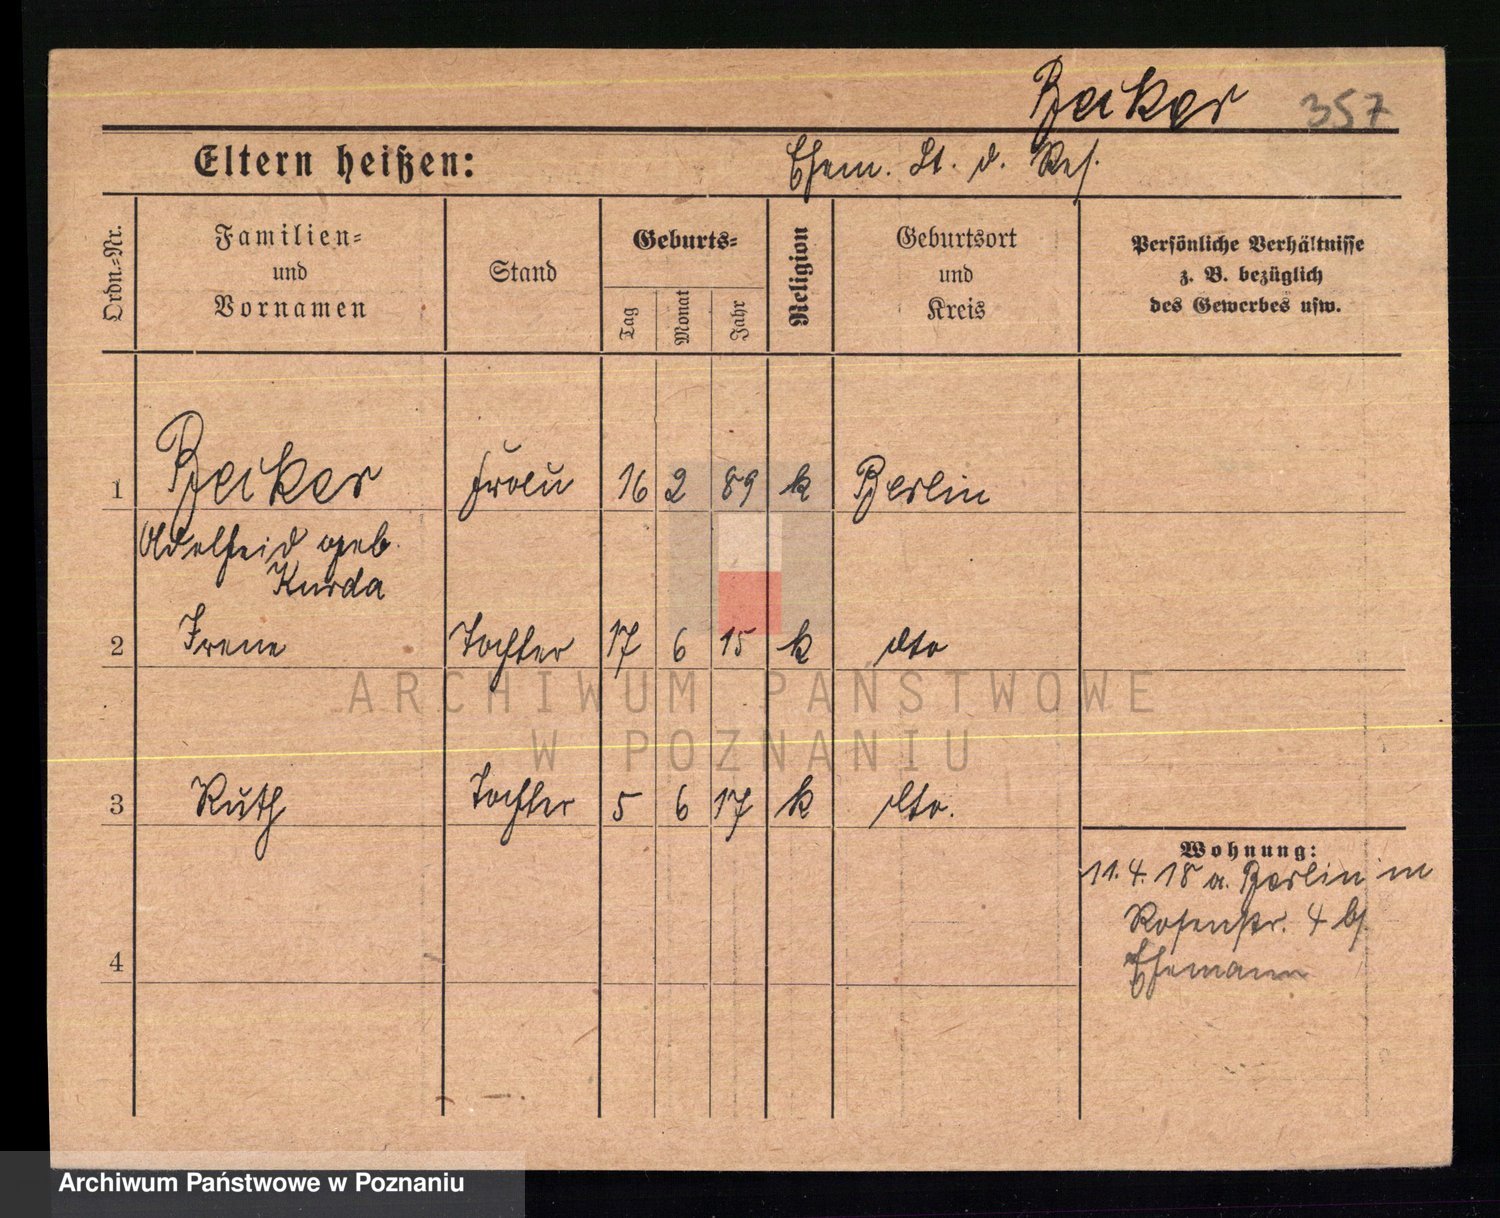 Becker 357
Eltern heißen:
Ehem. Lt. d. Res.
Ordn.-Nr.
Familien-
und
Vornamen
Stand
Geburts-
Tag
Monat
Jahr
Religion
Geburtsort
und
Kreis
Persönliche Verhältnisse
z. B. bezüglich
des Gewerbes usw.
1 Becker Frau 16 2 89 k Berlin
Adelheid geb.
Kurda
2 Irene Tochter 17 6 15 k dto
ARCHIWUM PAŃSTWOWE
W POZNANIU
3 Ruth Tochter 5 6 17 k dto.
Wohnung:
11.4.18 a. Berlin in
Rosenstr. 4 b/
Ehemann
4
Archiwum Państwowe w Poznaniu